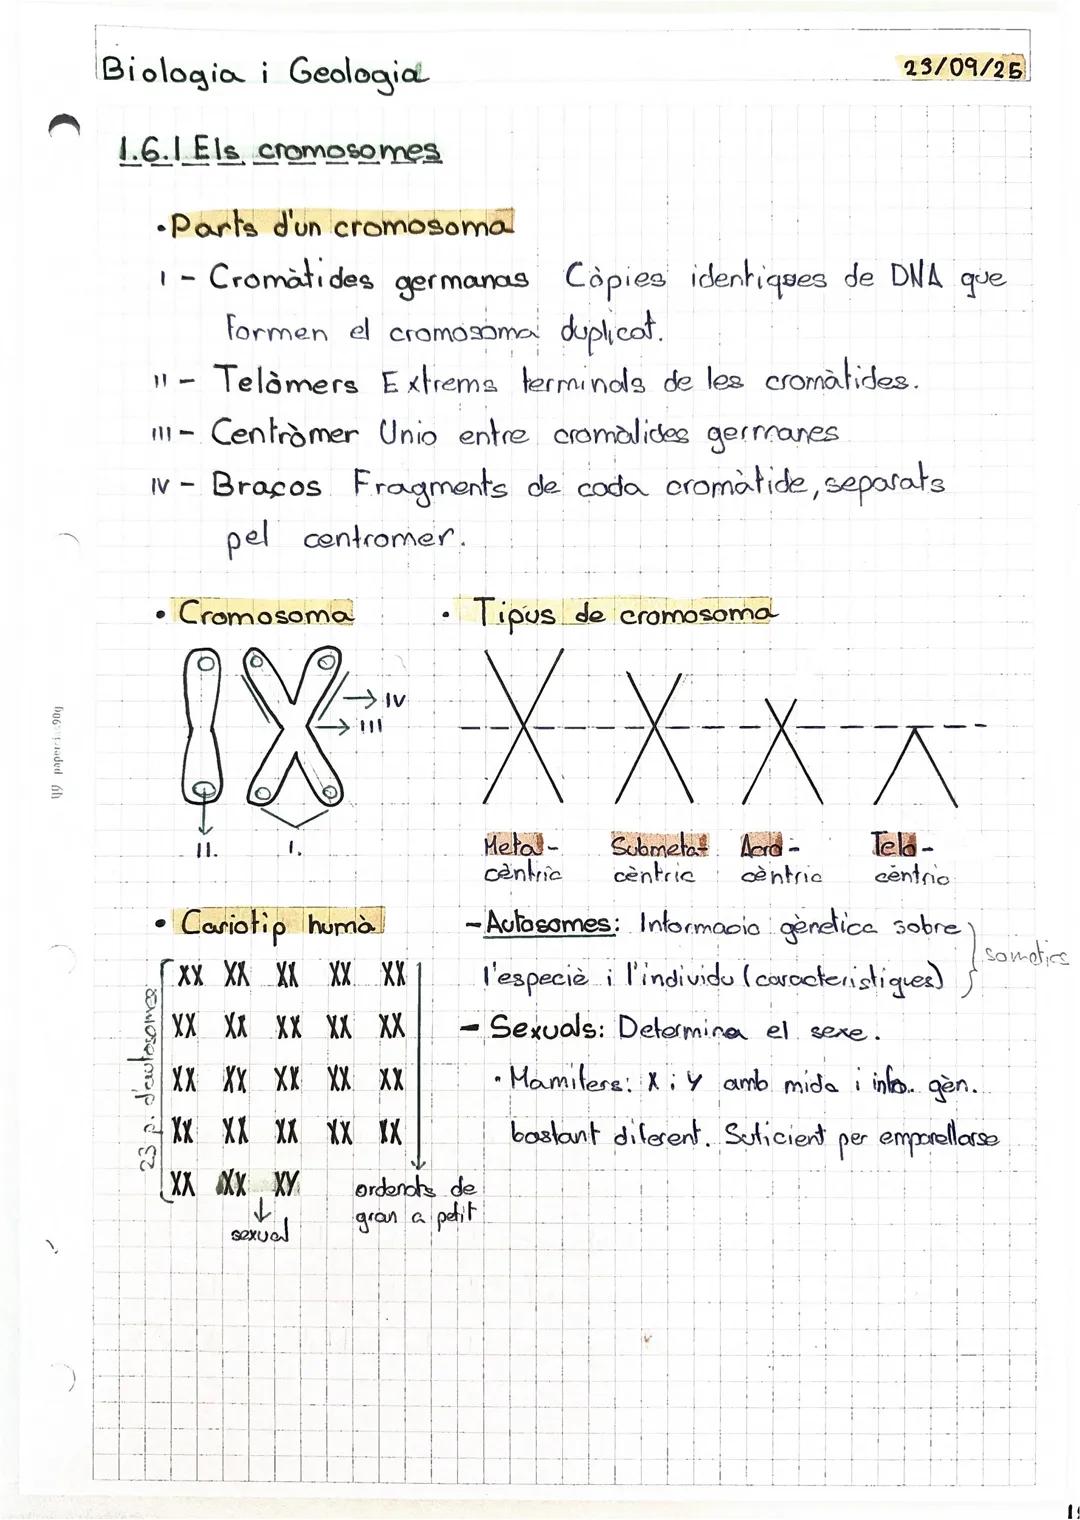 Biologia i Geologia
23/09/25
1.6.1 Els cromosomes
•Parts d'un cromosoma
I - Cromàtides germanas Còpies identiques de DNA que
formen el cromosoma duplicat.
II - Telòmers Extrems terminals de les cromàtides.
III - Centròmer Unio entre cromàtides germanes
IV - Braços Fragments de cada cromàtide, separats
pel centromer.
• Cromosoma
• Tipus de cromosoma
IV
III
II.
I.
Meta-
cèntric
Submeta-
cèntric
Acro-
cèntric
Telo-
cèntric
• Cariotip humà
23 p. d'autosomes
XX XX XX XX XX
XX XX XX XX XX
XX XX XX XX XX
XX XX XX XX XX
XX XX XY
sexual
ordenats de
gran a petit
- Autosomes: Informacio gènetica sobre
l'especiè i l'individu (caracteristiques)
somatics
- Sexuals: Determina el sexe.
• Mamifers: X i Y amb mida i info. gèn.
bastant diferent. Suficient per emparellarse
paper 90g